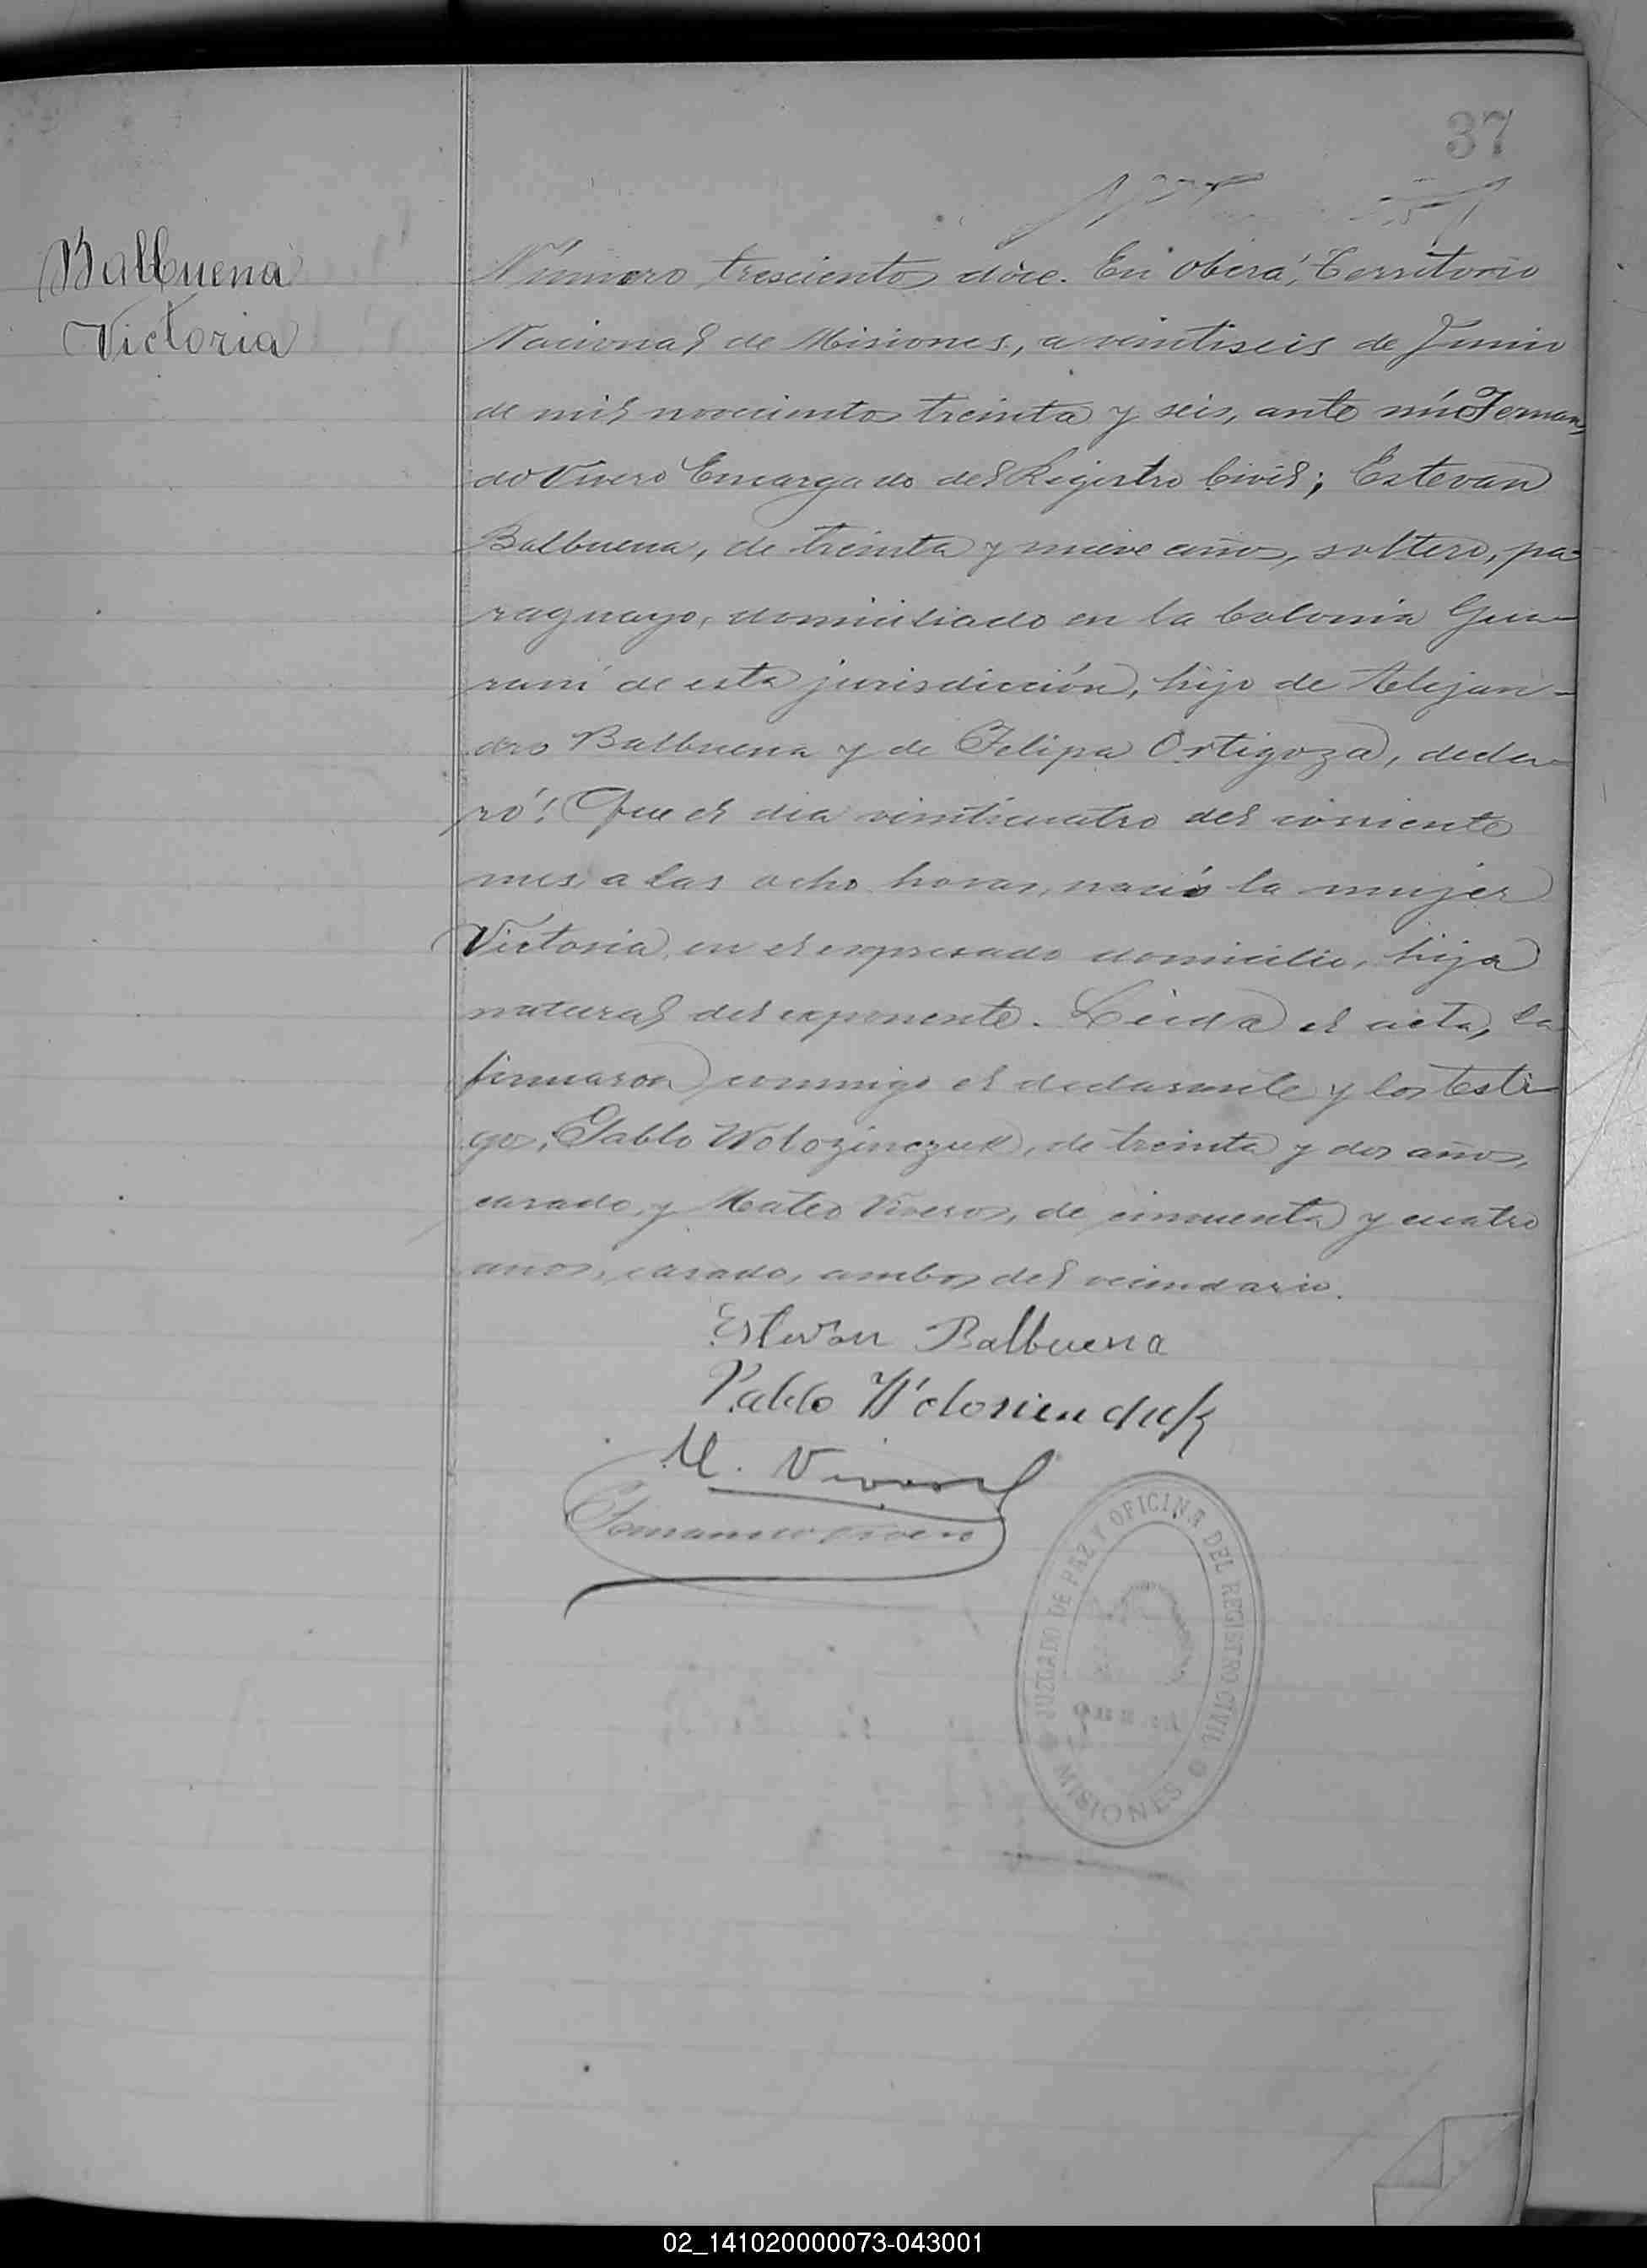 37
Balbuena
Victoria
Número trescientos doce. En Oberá, Territorio
Nacional de Misiones, a veintiseis de Junio
de mil novecientos treinta y seis, ante mí Fernan-
do Vivero Encargado del Registro Civil; Estevan
Balbuena, de treinta y nueve años, soltero, pa-
raguayo, domiciliado en la Colonia Gua-
raní de esta jurisdicción, hijo de Alejan-
dro Balbuena y de Felipa Ortigoza, decla-
ró: Que el dia veinticuatro del corriente
mes a las ocho horas, nació la mujer
Victoria, en el expresado domicilio, hija
natural del exponente. Leida el acta, la
firmaron conmigo el declarante y los testi-
gos, Pablo Wolozinczuk, de treinta y dos años,
casado, y Mateo Viveros, de cincuenta y cuatro
anos, casado, ambos del vecindario.
Estevan Balbuena
Pablo
M. Viveros
Fernando Vivero
JUZGADO DE PAZ Y OFICINA DEL REGISTRO CIVIL
MISIONES
02_141020000073-043001